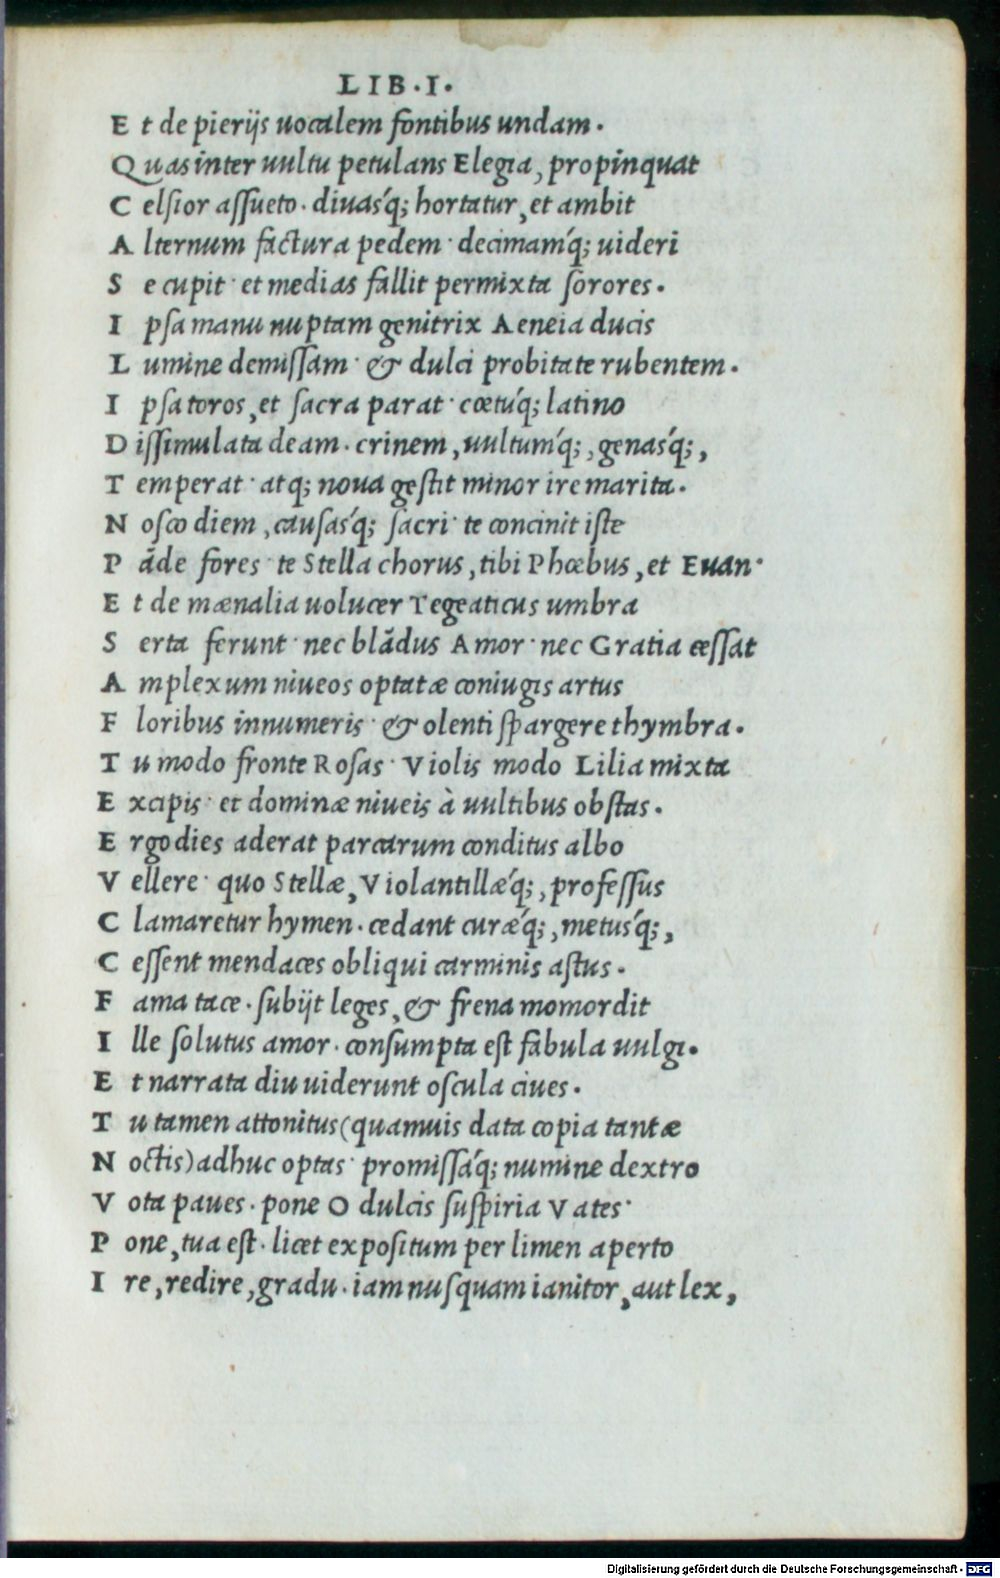 LIB·I·
E t de pierijs uocalem fontibus undam·
Q uas inter uultu petulans Elegia, propinquat
C elsior assueto· diuasq́; hortatur, et ambit
A lternum factura pedem· decimamq́; uideri
S e cupit· et medias fallit permixta sorores·
I psa manu nuptam genitrix Aeneia ducis
L umine demissam· & dulci probitate rubentem·
I psa toros, et sacra parat· cœtuq́; latino
D issimulata deam· crinem, uultumq́;, genasq́;,
T emperat· atq; noua gestit minor ire marita·
N osco diem, causasq́; sacri· te concinit iste
P āde fores· te Stella chorus, tibi Phœbus, et Euan·
E t de mænalia uolucer Tegeaticus umbra
S erta ferunt· nec blādus Amor· nec Gratia cessat
A mplexum niueos optatæ coniugis artus
F loribus innumeris· & olenti spargere thymbra·
T u modo fronte Rosas· Violis modo Lilia mixta
E xcipis· et dominæ niueis à uultibus obstas·
E rgo dies aderat parcarum conditus albo
V ellere· quo Stellæ, Violantillæq́;, professus
C lamaretur hymen· cedant curæq́;, metusq́;,
C essent mendaces obliqui carminis astus·
F ama tace· subijt leges, & frena momordit
I lle solutus amor· consumpta est fabula uulgi·
E t narrata diu uiderunt oscula ciues·
T u tamen attonitus (quamuis data copia tantæ
N octis) adhuc optas· promissaq́; numine dextro
V ota paues· pone O dulcis suspiria Vates·
P one, tua est· licet expositum per limen aperto
I re, redire, gradu· iam nusquam ianitor, aut lex,
Digitalisierung gefördert durch die Deutsche Forschungsgemeinschaft - DFG